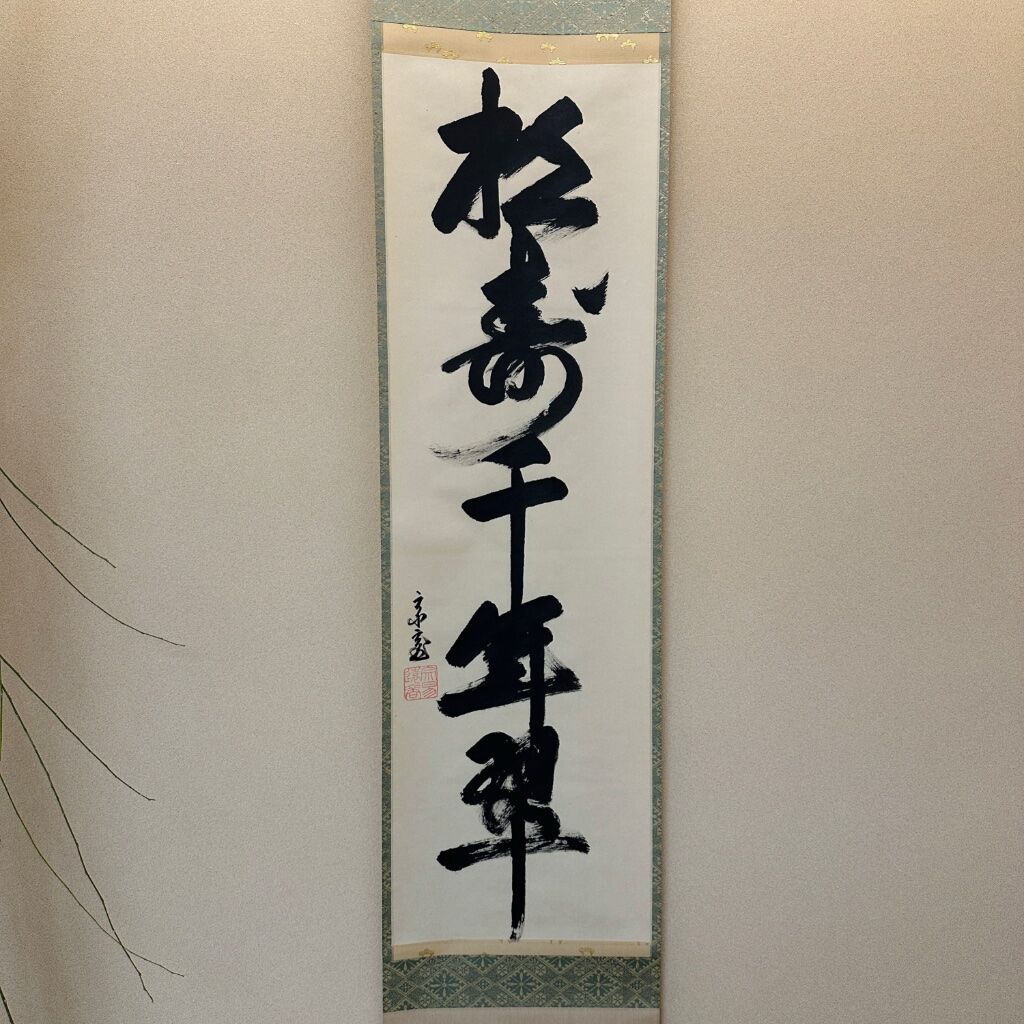 松寿千年翠